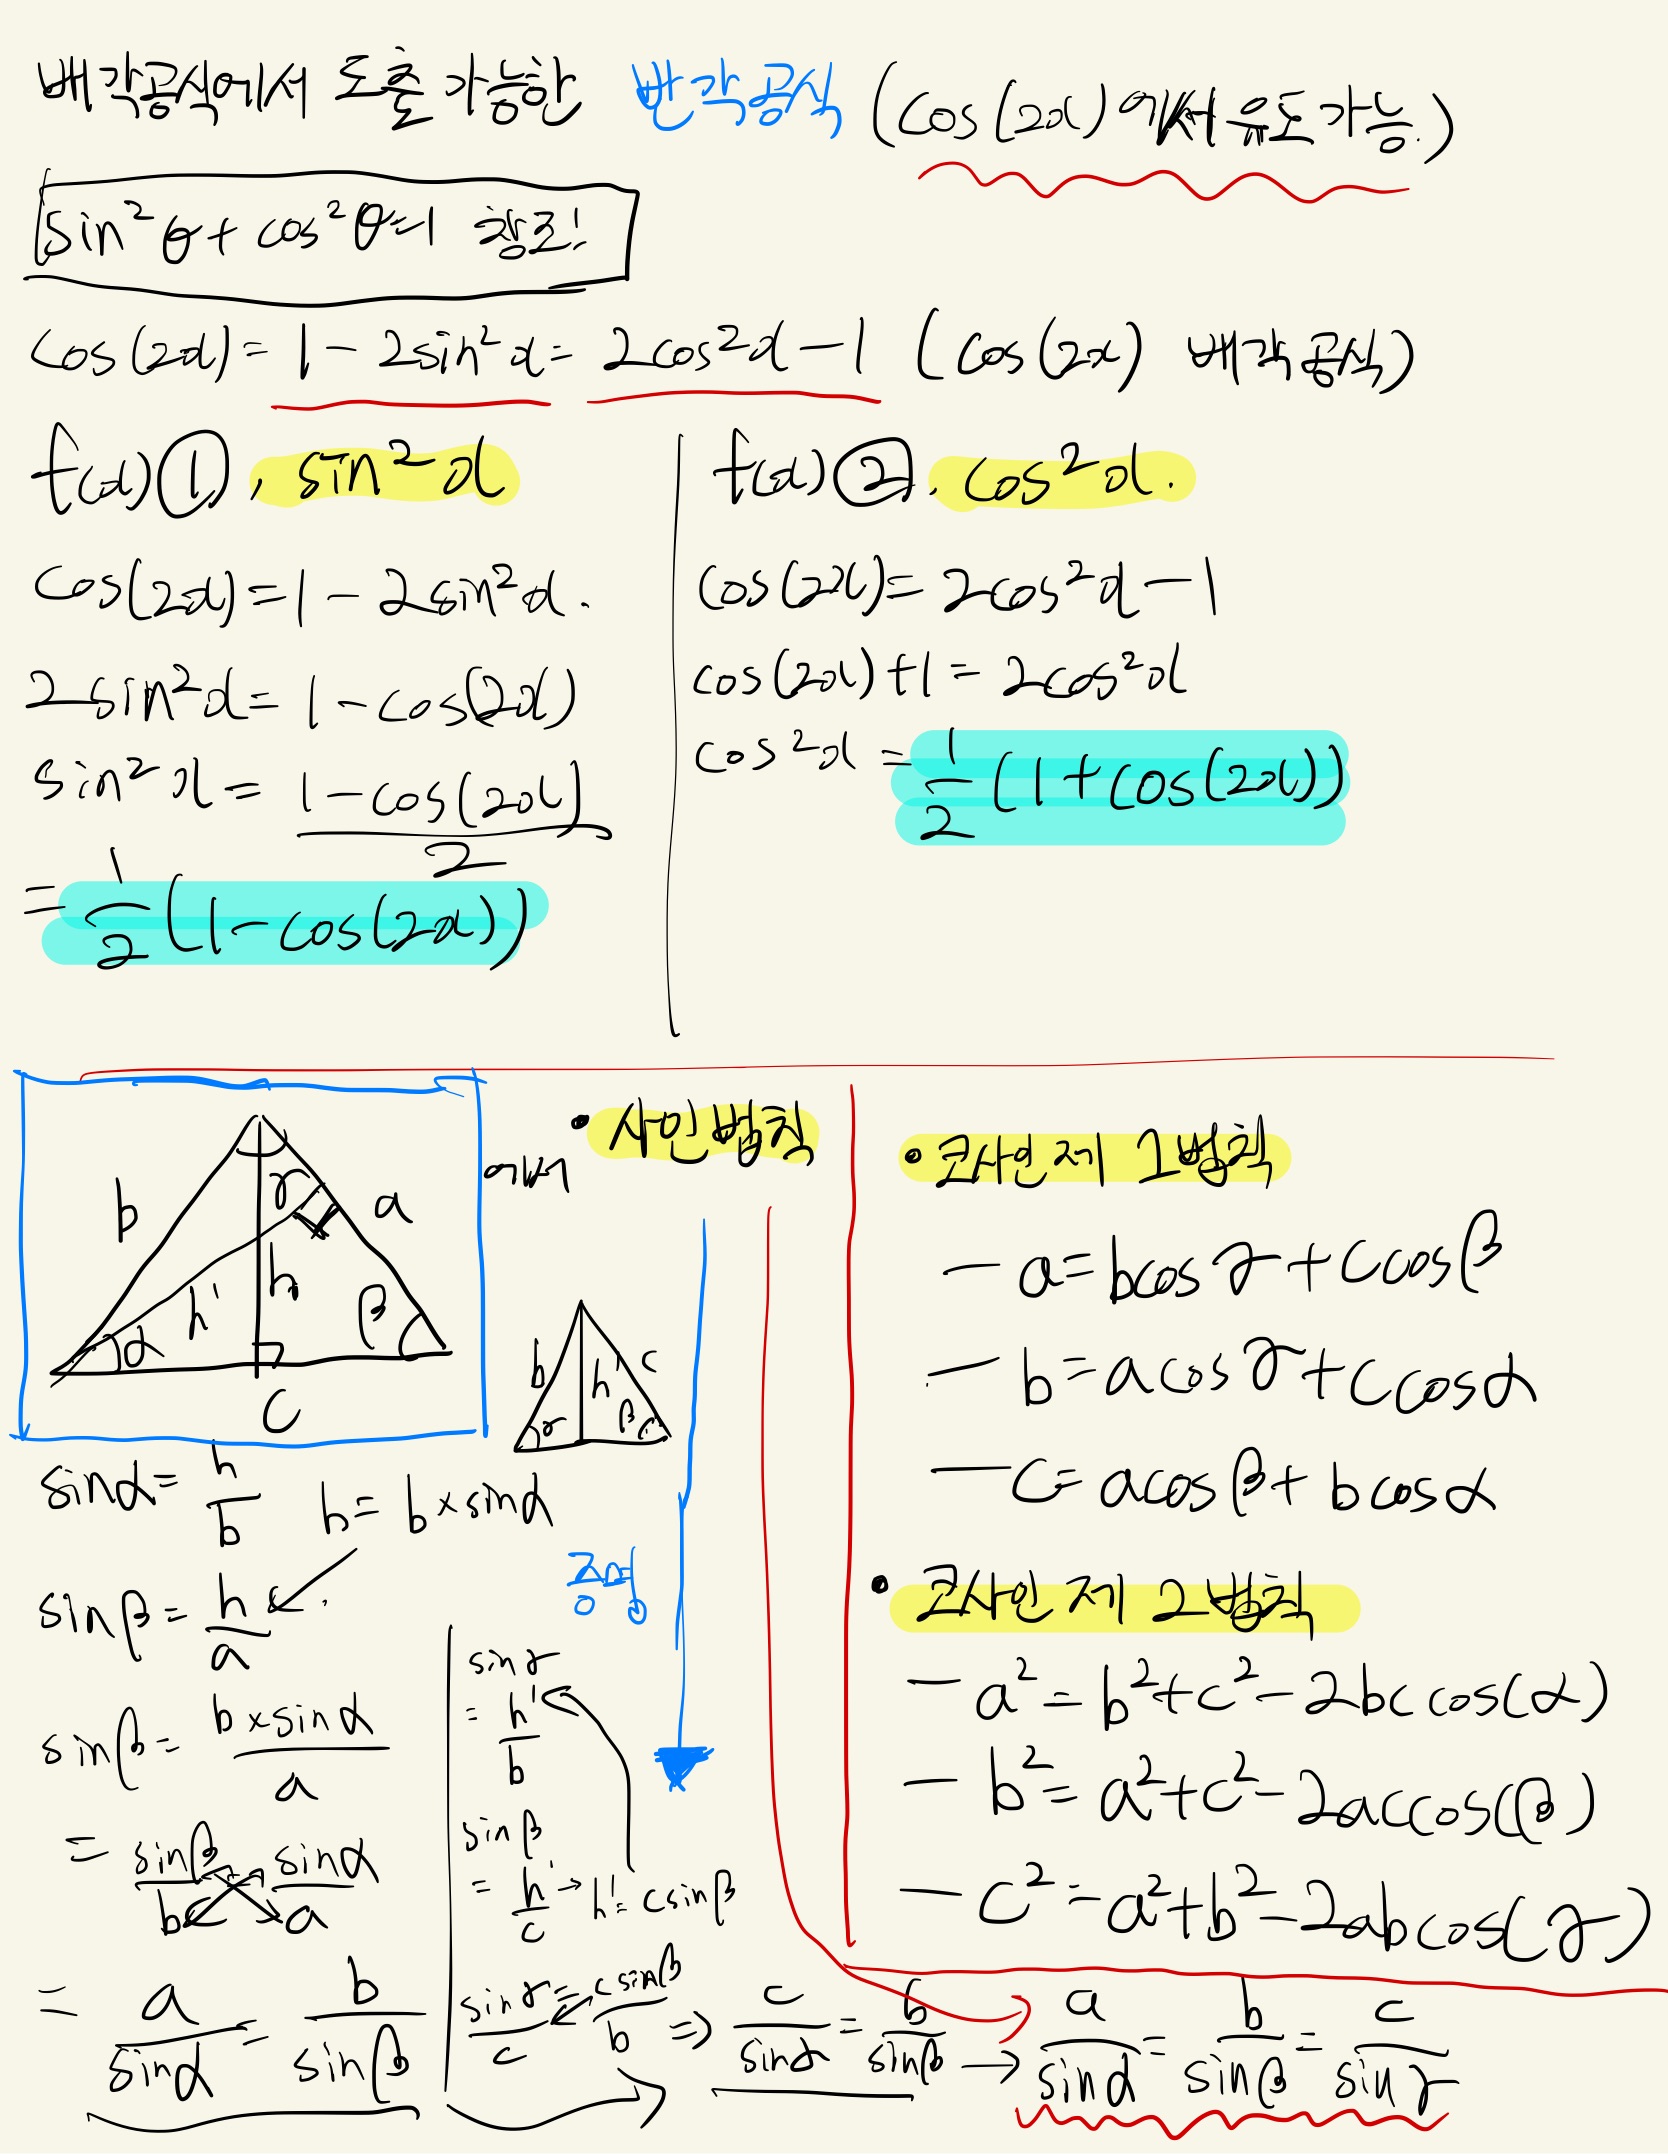 배각공식에서 도출 가능한 반각공식 (cos(2α)에서 유도가능.)
sin²θ + cos²θ=1 참조!
cos(2α) = 1 - 2sin²α = 2cos²α - 1 (cos(2α) 배각공식)
f(α) ①, sin²α
cos(2α) = 1 - 2sin²α.
2sin²α = 1 - cos(2α)
sin²α = (1 - cos(2α))/2
= 1/2 (1 - cos(2α))
f(α) ②. cos²α.
cos(2α) = 2cos²α - 1
cos(2α) + 1 = 2cos²α
cos²α = 1/2 (1 + cos(2α))
b γ a
h' h
α β
c
에서
• 사인법칙
b h c
γ β
증명
sinα = h/b h = b×sinα
sinβ = h/a
sinβ = b×sinα/a
= sinβ/b = sinα/a
= a/sinα = b/sinβ
sinγ
= h'/b
sinβ
= h'/c → h' = csinβ
sinγ/c = csinβ/b ⇒ c/sinα = b/sinβ → a/sinα = b/sinβ = c/sinγ
• 코사인 제 1법칙
- a = bcosγ + ccosβ
- b = acosγ + ccosα
- c = acosβ + bcosα
• 코사인 제 2법칙
- a² = b² + c² - 2bc cos(α)
- b² = a² + c² - 2accos(β)
- c² = a² + b² - 2abcos(γ)